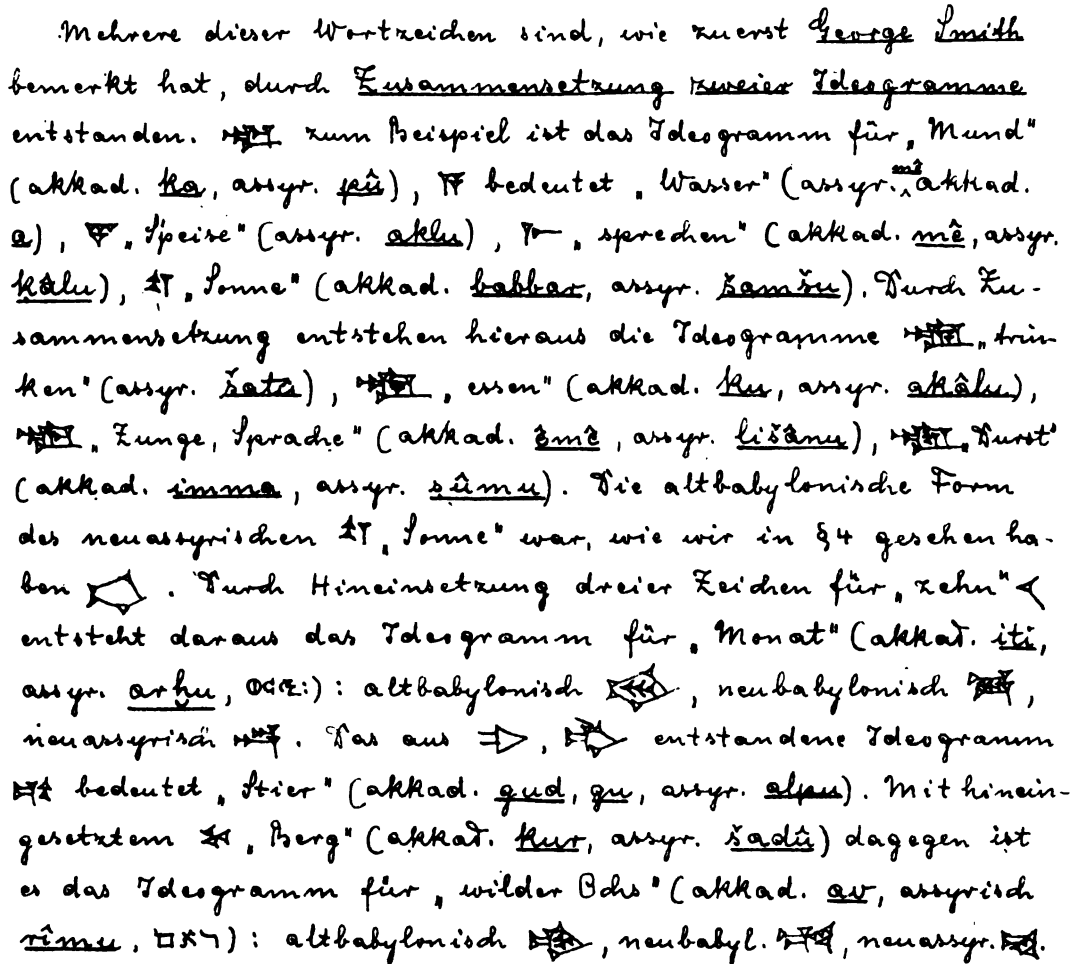 Mehrere dieser Wortzeichen sind, wie zuerst George Smith
bemerkt hat, durch Zusammensetzung zweier Ideogramme
entstanden. 𒅗 zum Beispiel ist das Ideogramm für „Mund"
(akkad. ka, assyr. pû), 𒀀 bedeutet „Wasser" (assyr. mê akkad.
a), 𒃻 „Speise" (assyr. aklu), 𒈨 „sprechen" (akkad. mê, assyr.
kâlu), 𒌓 „Sonne" (akkad. babbar, assyr. šamšu). Durch Zu-
sammensetzung entstehen hieraus die Ideogramme 𒅘 „trin-
ken" (assyr. šatû), 𒅥 „essen" (akkad. ku, assyr. akâlu),
𒅴 „Zunge, Sprache" (akkad. êmê, assyr. lišânu), „Durst"
(akkad. imma, assyr. sûmu). Die altbabylonische Form
des neuassyrischen 𒌓 „Sonne" war, wie wir in §4 gesehen ha-
ben . Durch Hineinsetzung dreier Zeichen für „zehn" 𒌋
entsteht daraus das Ideogramm für „Monat" (akkad. iti,
assyr. arḫu, ወርኅ:): altbabylonisch , neubabylonisch 𒌗,
neuassyrisch 𒌗. Das aus , entstandene Ideogramm
𒄞 bedeutet „Stier" (akkad. gud, gu, assyr. alpu). Mit hinein-
gesetztem 𒆳 „Berg" (akkad. kur, assyr. šadû) dagegen ist
es das Ideogramm für „wilder Ochs" (akkad. av, assyrisch
rîmu, ראם): altbabylonisch 𒄠, neubabyl. 𒄠, neuassyr. 𒄠.